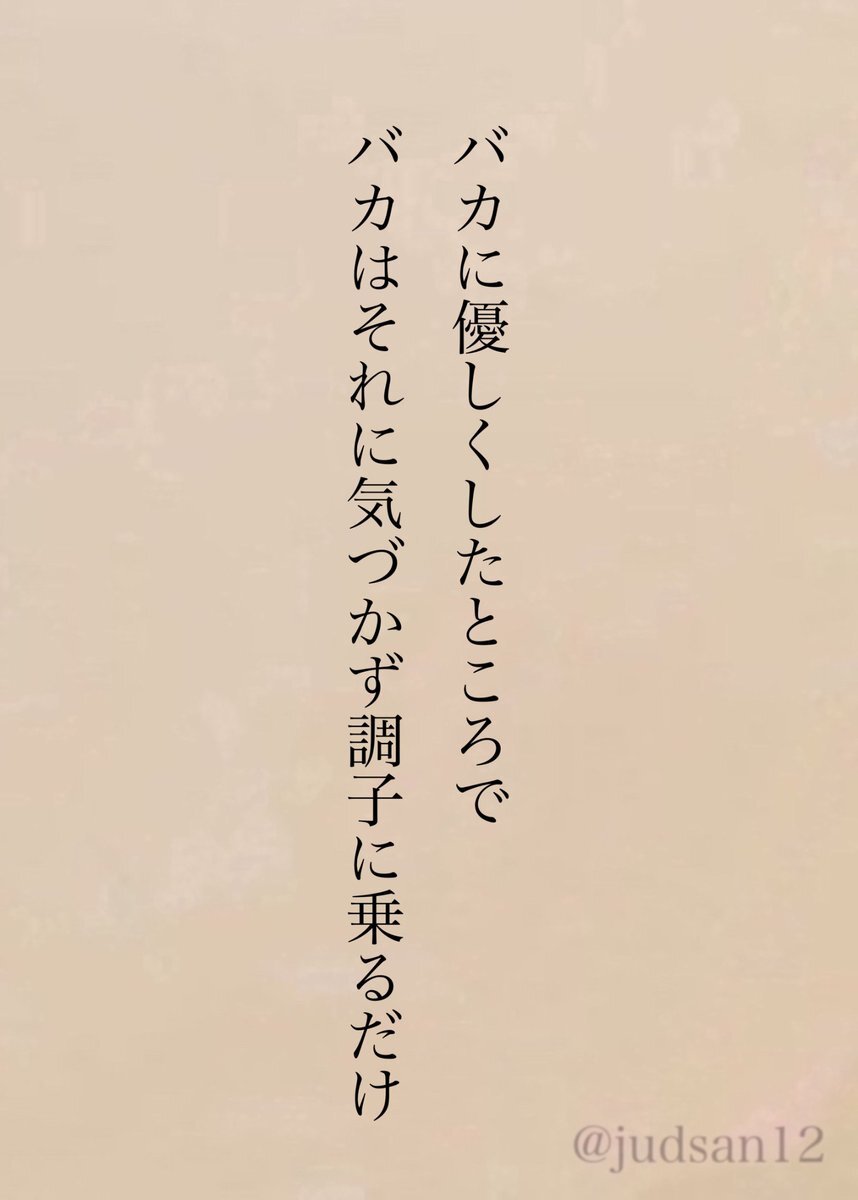 バカに優しくしたところで
バカはそれに気づかず調子に乗るだけ
@judsan12